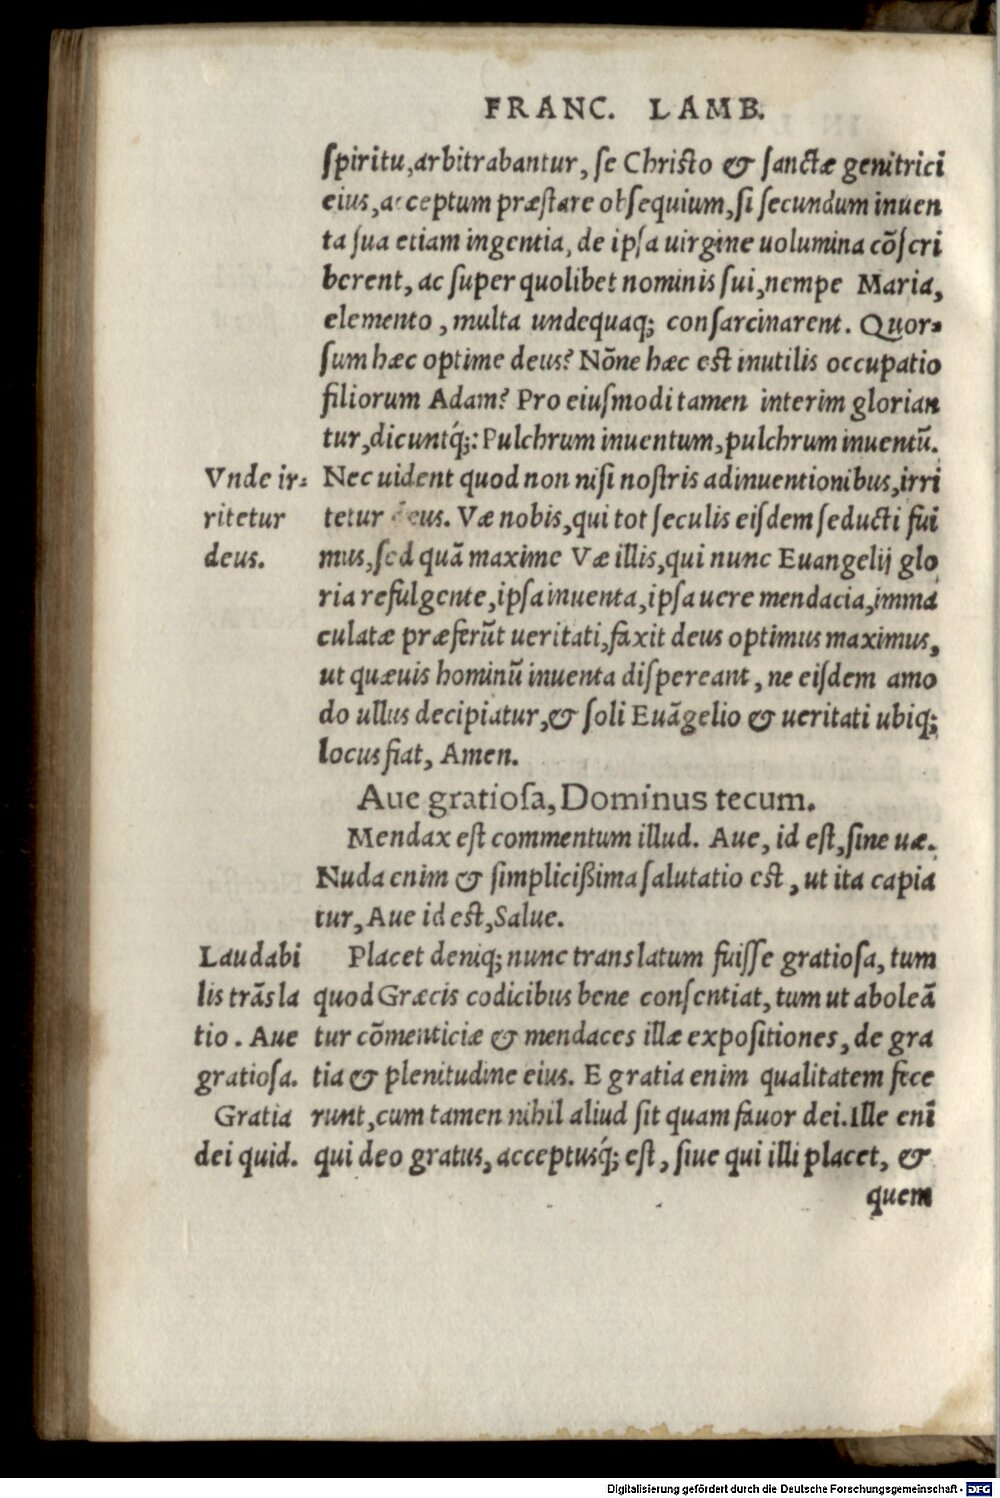 FRANC. LAMB.
ſpiritu, arbitrabantur, ſe Chriſto & ſanctæ genitrici
eius, acceptum præſtare obſequium, ſi ſecundum inuen
ta ſua etiam ingentia, de ipſa uirgine uolumina cõſcri
berent, ac ſuper quolibet nominis ſui, nempe Maria,
elemento, multa undequaq; conſarcinarent. Quor⸗
ſum hæc optime deus? Nõne hæc eſt inutilis occupatio
filiorum Adam? Pro eiuſmodi tamen interim glorian
tur, dicuntq́;: Pulchrum inuentum, pulchrum inuentũ.
Vnde ir⸗
ritetur
deus.
Nec uident quod non niſi noſtris adinuentionibus, irri
tetur deus. Væ nobis, qui tot ſeculis eiſdem ſeducti fui
mus, ſed quã maxime Væ illis, qui nunc Euangelij glo
ria refulgente, ipſa inuenta, ipſa uere mendacia, imma
culatæ præferũt ueritati, faxit deus optimus maximus,
ut quæuis hominũ inuenta diſpereant, ne eiſdem amo
do ullus decipiatur, & ſoli Euãgelio & ueritati ubiq;
locus fiat, Amen.
Aue gratioſa, Dominus tecum.
Mendax eſt commentum illud. Aue, id eſt, ſine uæ.
Nuda enim & ſimplicißima ſalutatio eſt, ut ita capia
tur, Aue id eſt, Salue.
Laudabi
lis trãsla
tio. Aue
gratioſa.
Gratia
dei quid.
Placet deniq; nunc translatum fuiſſe gratioſa, tum
quod Græcis codicibus bene conſentiat, tum ut aboleã
tur cõmenticiæ & mendaces illæ expoſitiones, de gra
tia & plenitudine eius. E gratia enim qualitatem fece
runt, cum tamen nihil aliud ſit quam fauor dei. Ille enĩ
qui deo gratus, acceptusq́; eſt, ſiue qui illi placet, &
quem
Digitalisierung gefördert durch die Deutsche Forschungsgemeinschaft - DFG